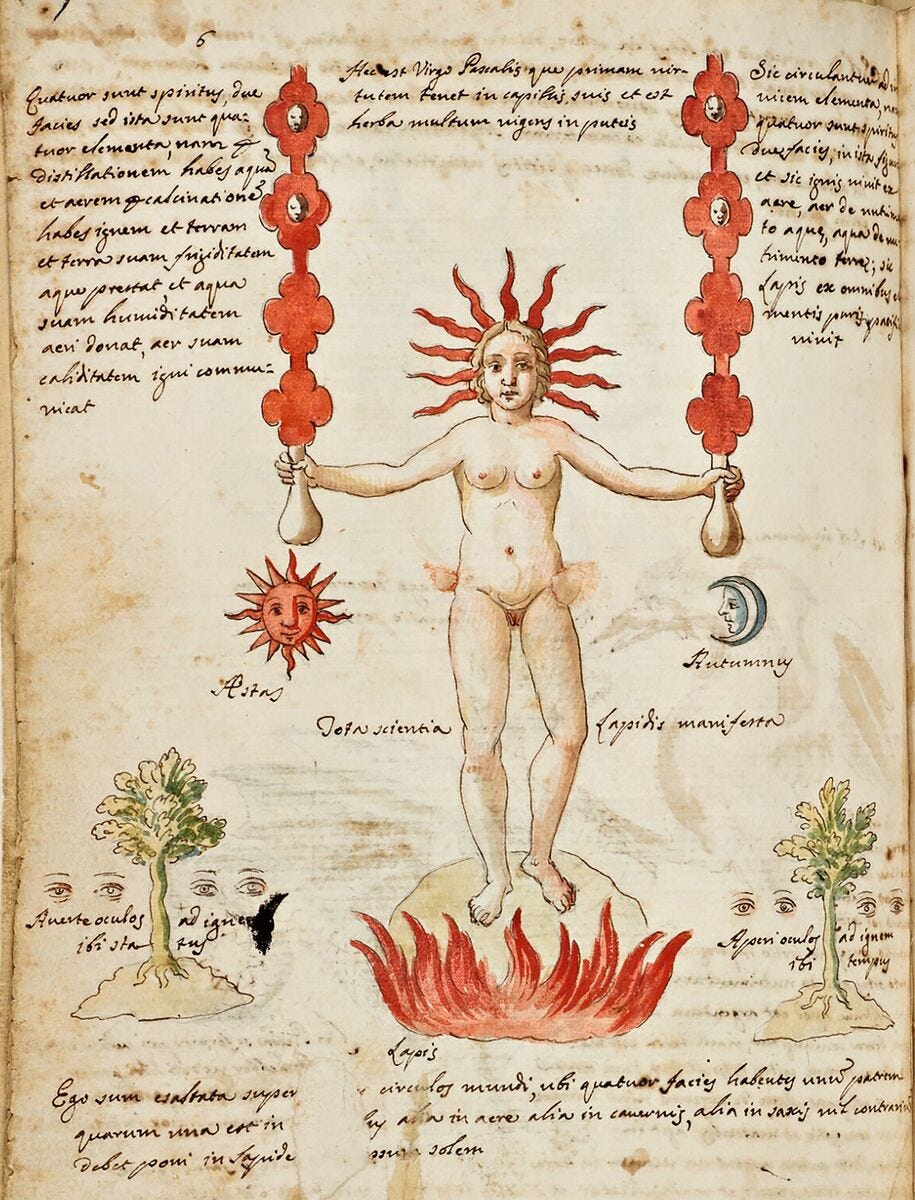 6
Quatuor sunt spiritus, due
facies sed ista sunt qua-
tuor elementa, nam
distillationem habes aquā
et aerem calcinationē
habes ignem et terram
et terra suam frigiditatem
aque prestat, et aqua
suam humiditatem
aeri donat, aer suam
caliditatem igni commu-
nicat
Hec est Virgo Pascalis que primam vir-
tutem tenet in capillis suis et est
herba multum vigens in puteis
Sic circulantur ad in
vicem elementa, nam
quatuor sunt spiritus
due facies, in ista
et sic ignis vivit ex
aere, aer de nutrimen
to aque, aqua de nu
trimento terre; sic
Lapis ex omnibus
mentis puris
vivit
Æstas
Autumnus
Tota scientia Lapidis manifesta
Averte oculos ad igne
ibi sta tus
Aperi oculos ad ignem
ibi tempus
Lapis
Ego sum exaltata super circulos mundi, ubi quatuor facies habentes unū patrem
quarum una est in alia in aere alia in cavernis, alia in saxis
debet poni in lapide solem